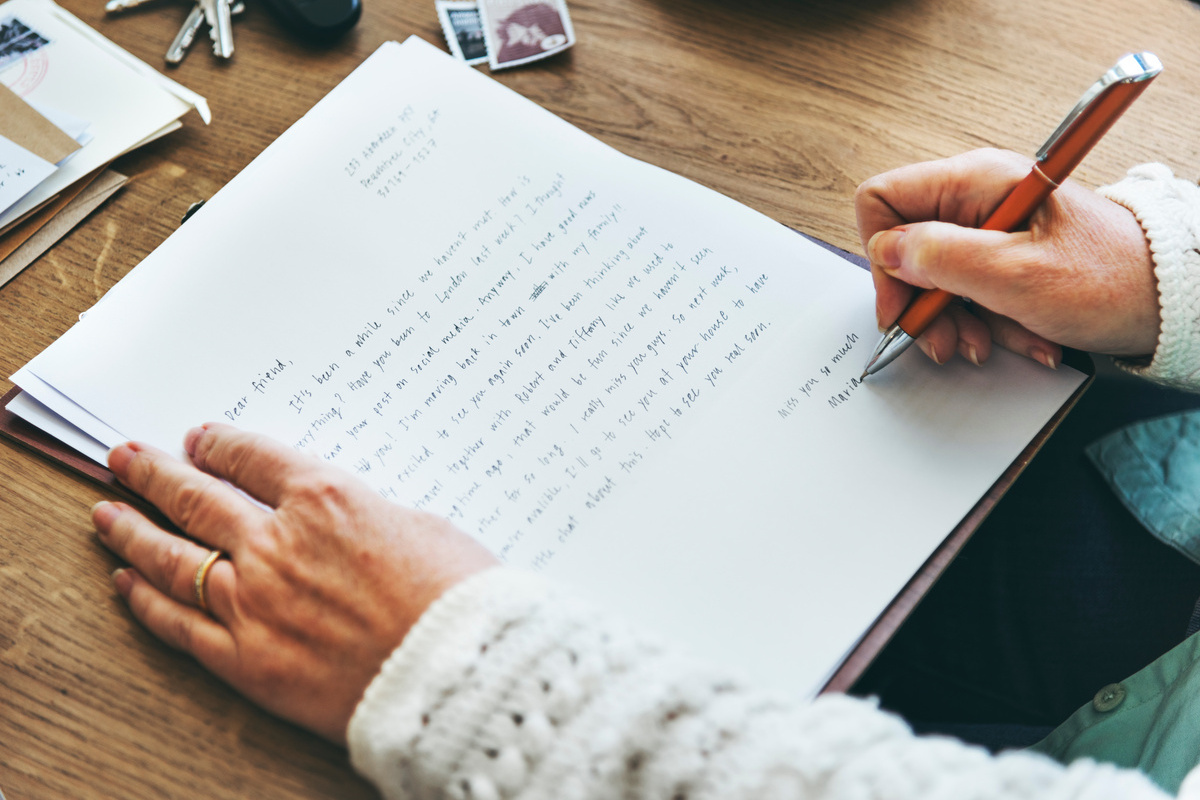 203 Aberdeen Hwy
Peachtree City, GA
30169-1527
Dear friend,
It's been a while since we haven't met. How is
everything? Have you been to London last week? I thought
saw your post on social media. Anyway, I have good news
you! I'm moving back in town with my family!!
excited to see you again soon. I've been thinking about
travel together with Robert and Tiffany like we used to
time ago, that would be fun since we haven't seen
other for so long. I really miss you guys. So next week,
you're avalible, I'll go to see you at your house to have
me chat about this. Hope to see you real soon.
Miss you so much
Maria